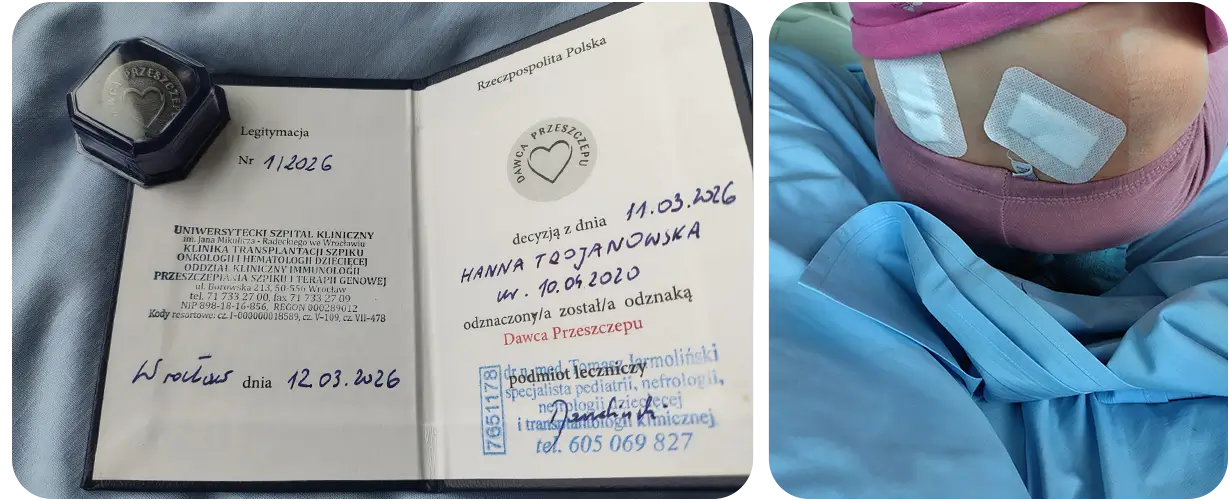 DAWCA PRZESZCZEPU
Legitymacja
Nr 1/2026
UNIWERSYTECKI SZPITAL KLINICZNY
im. Jana Mikulicza - Radeckiego we Wrocławiu
KLINIKA TRANSPLANTACJI SZPIKU
ONKOLOGII I HEMATOLOGII DZIECIĘCEJ
ODDZIAŁ KLINICZNY IMMUNOLOGII
PRZESZCZEPIANIA SZPIKU I TERAPII GENOWEJ
ul. Borowska 213, 50-556 Wrocław
tel. 71 733 27 00, fax 71 733 27 09
NIP 898-18-16-856, REGON 000289012
Kody resortowe: cz. I-000000018589, cz. V-109, cz. VII-478
Wrocław dnia 12.03.2026
Rzeczpospolita Polska
DAWCA PRZESZCZEPU
decyzją z dnia 11.03.2026
HANNA TROJANOWSKA
ur. 10.04.2020
odznaczony/a został/a odznaką
Dawca Przeszczepu
podmiot leczniczy
7651178
dr n. med. Tomasz Jarmoliński
specjalista pediatrii, nefrologii,
nefrologii dziecięcej
i transplantologii klinicznej
tel. 605 069 827